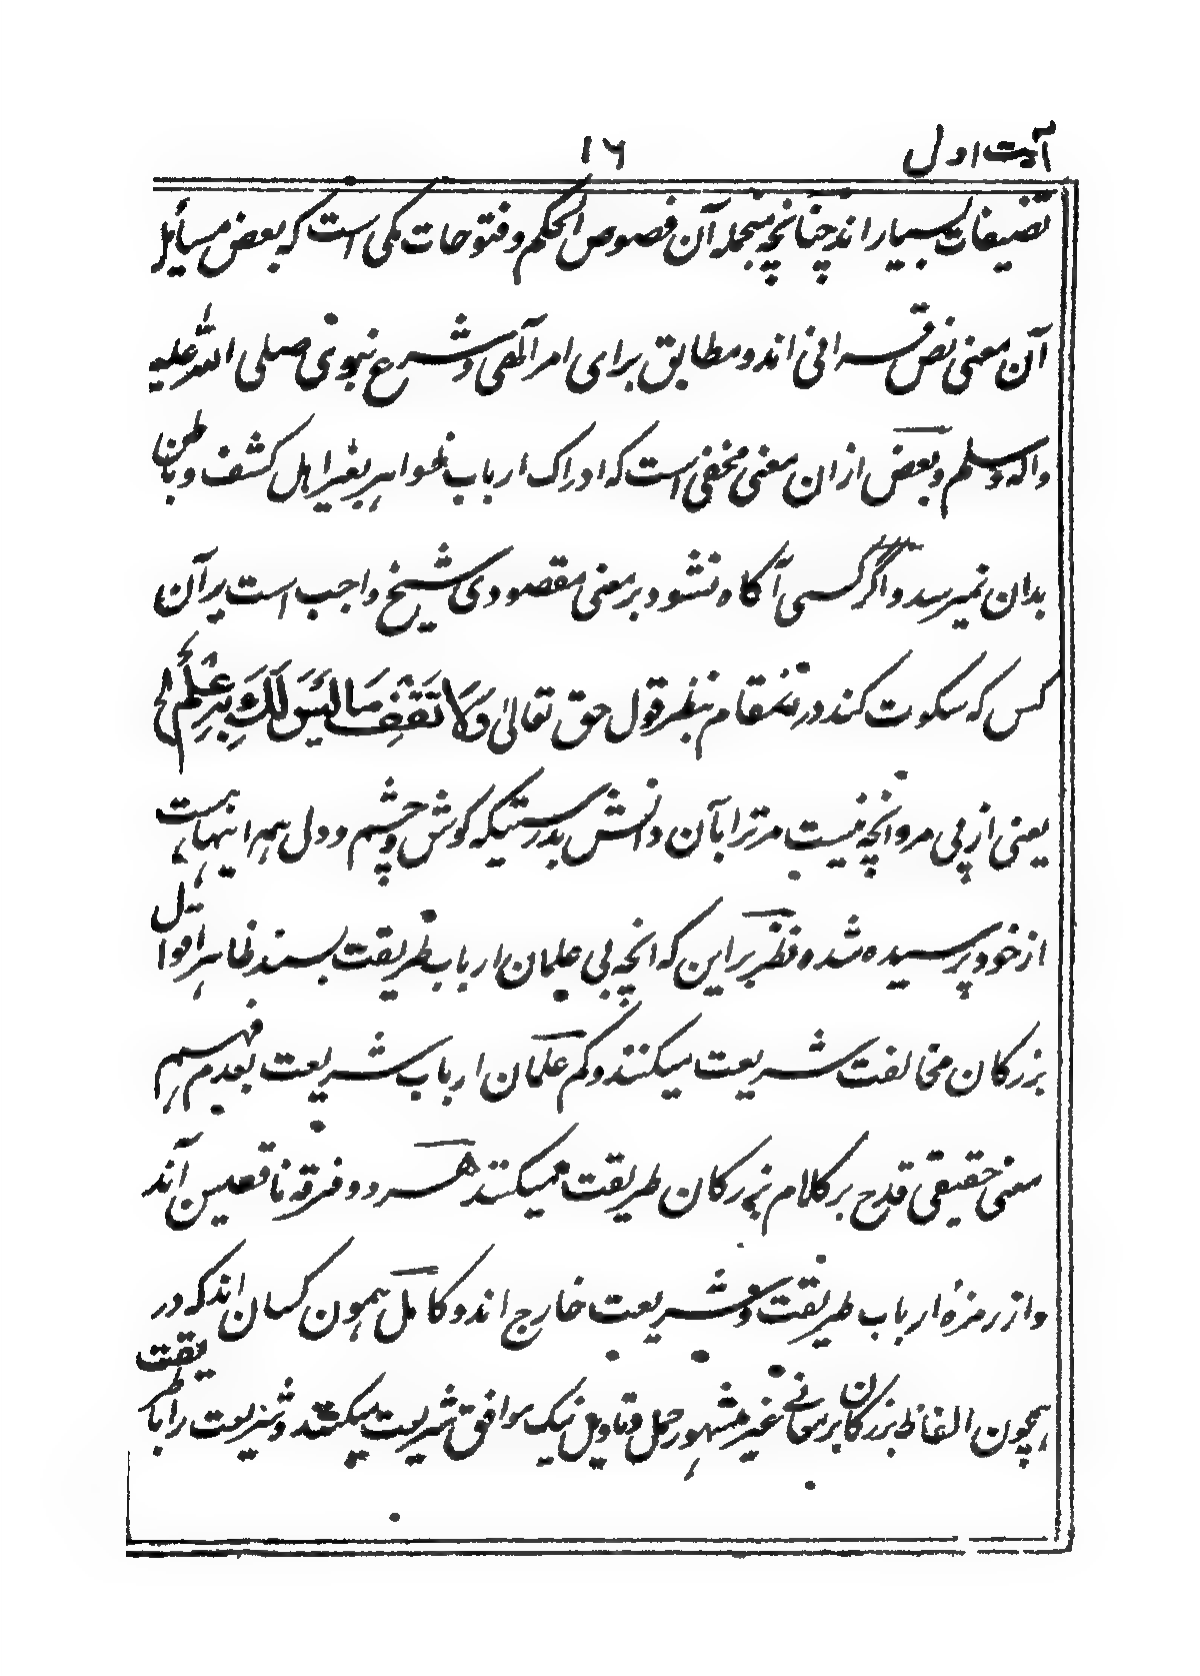 آیت اول
۱۶
تصنیفات بسیار اند چنانچه منجمله آن فصوص الحکم و فتوحات مکی است که بعض مسائل
آن معنی نص قرانی اند و مطابق برای امر الٓهی و شرع نبوی صلی الله علیه
واله وسلم و بعض ازان معنی مخفی است که ادراک ارباب ظواهر بغیر اهل کشف و باطن
بدان نمیرسد و اگر کسی آگاه نشود بر معنی مقصودی شیخ واجب است بر آن
کس که سکوت کند درینمقام بنظر قول حق تعالیٰ وَلَا تَقْفُ مَا لَیْسَ لَکَ بِهِ عِلْمٌ الخ
یعنی از پی مرو انچه نیست مر ترا بآن دانش بدرستیکه گوش و چشم و دل همه اینها هست
از خود پرسیده شده نظر بر این که انچه بی علمان ارباب طریقت بسند ظاهر اقوال
بزرگان مخالفت شریعت میکنند و کم علمان ارباب شریعت بعدم فهم
معنی حقیقی قدح بر کلام بزرگان طریقت میکنند هر دو فرقه ناقصین آند
و از زمرهٔ ارباب طریقت و شریعت خارج اند و کامل همون کسان اند که در
همچون الفاظ بزرگان بر معانے غیر مشهور حمل و تاویل نیک موافق شریعت میکنند و شریعت را با طریقت